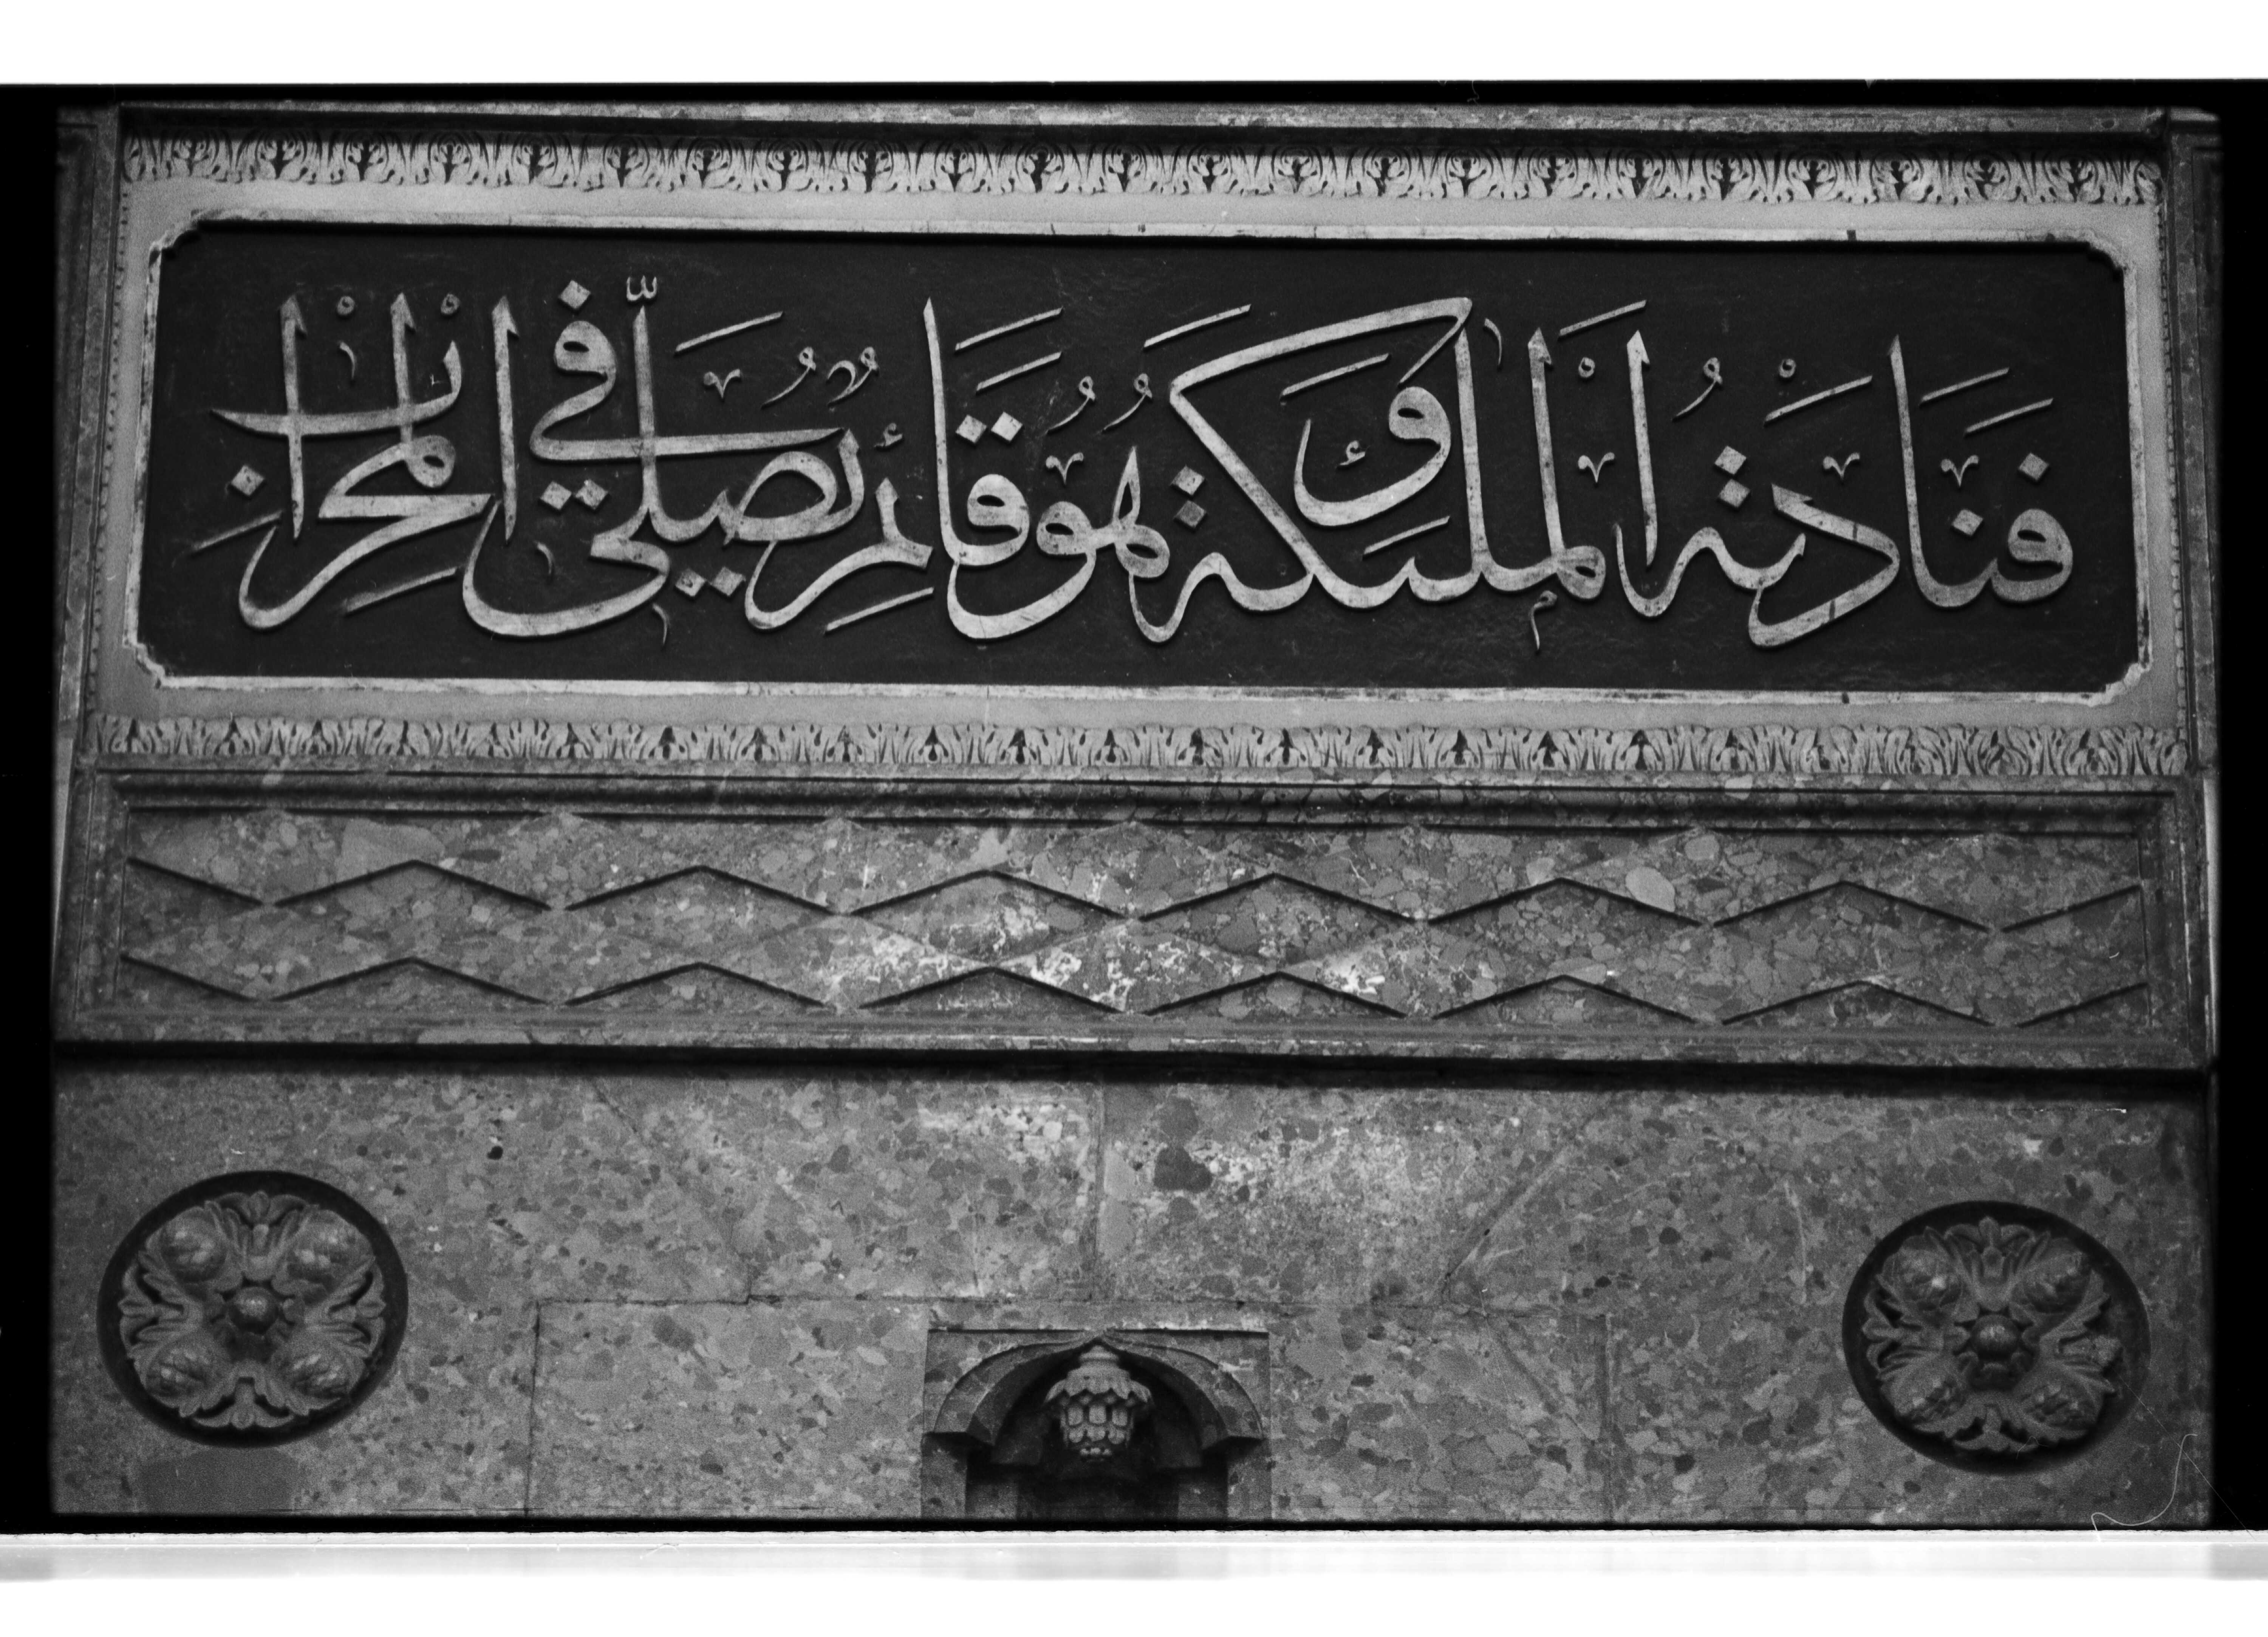 فَنَادَتْهُ الْمَلٰئِكَةُ وَهُوَ قَائِمٌ يُصَلِّي فِي الْمِحْرَابِ